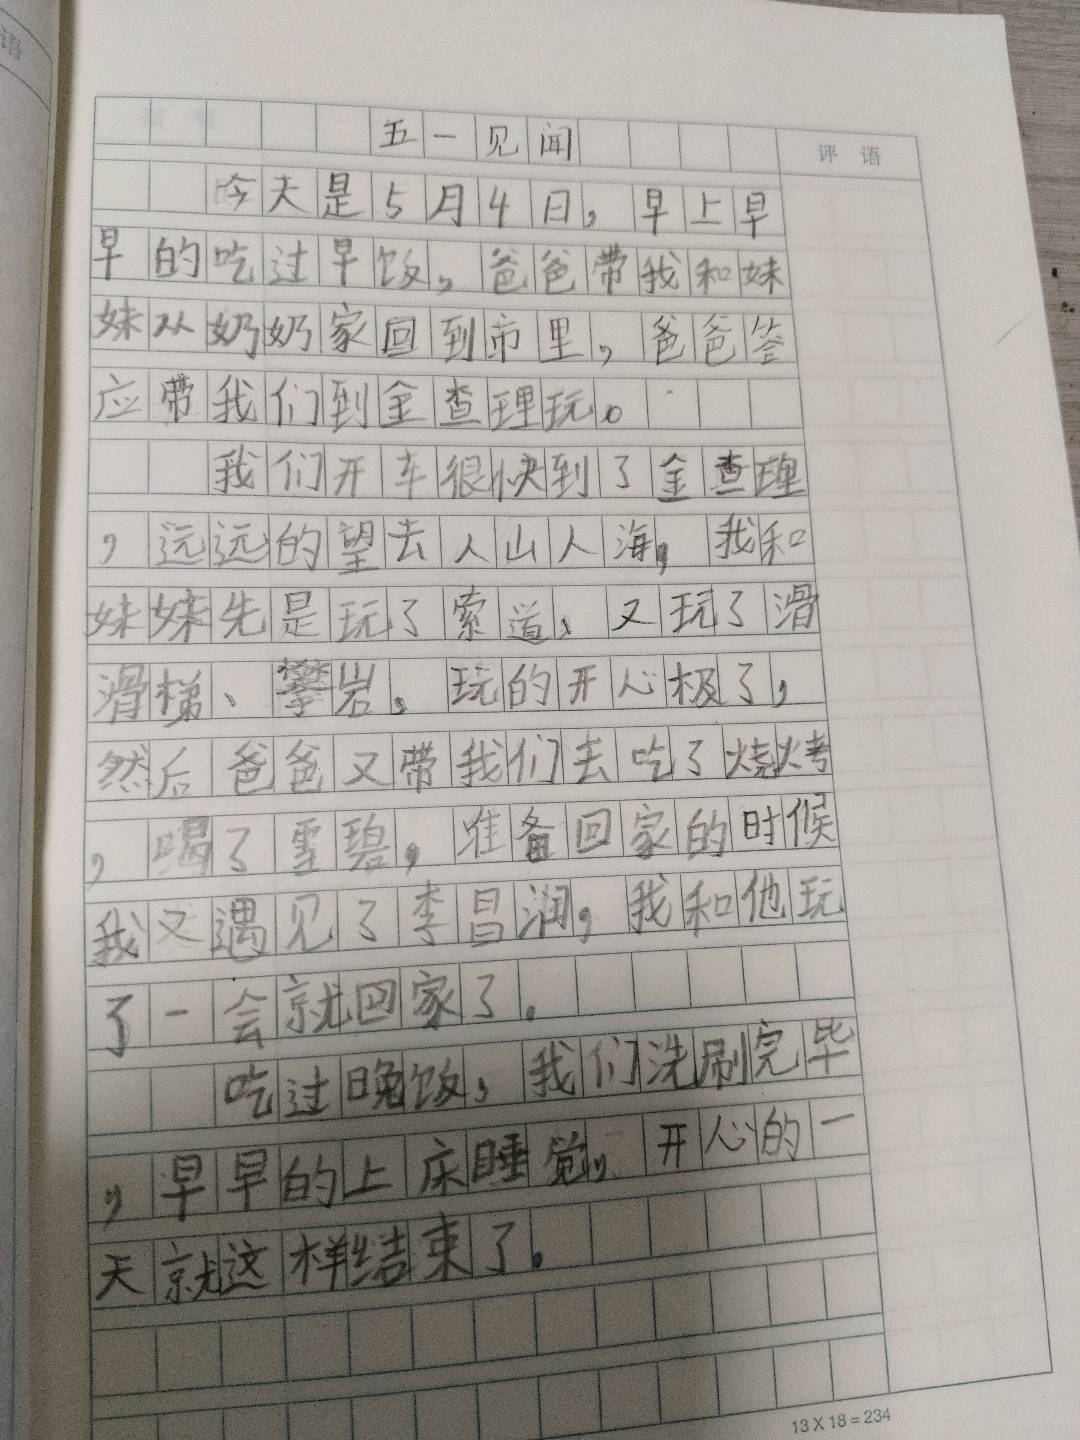 五一见闻
评语
今天是5月4日，早上早
早的吃过早饭，爸爸带我和妹
妹从奶奶家回到市里，爸爸答
应带我们到金查理玩。
我们开车很快到了金查理
，远远的望去人山人海，我和
妹妹先是玩了索道、又玩了滑
滑梯、攀岩。玩的开心极了，
然后爸爸又带我们去吃了烧烤
，喝了雪碧，准备回家的时候
我又遇见了李昌润，我和他玩
了一会就回家了。
吃过晚饭，我们洗刷完毕
，早早的上床睡觉，开心的一
天就这样结束了。
13×18=234